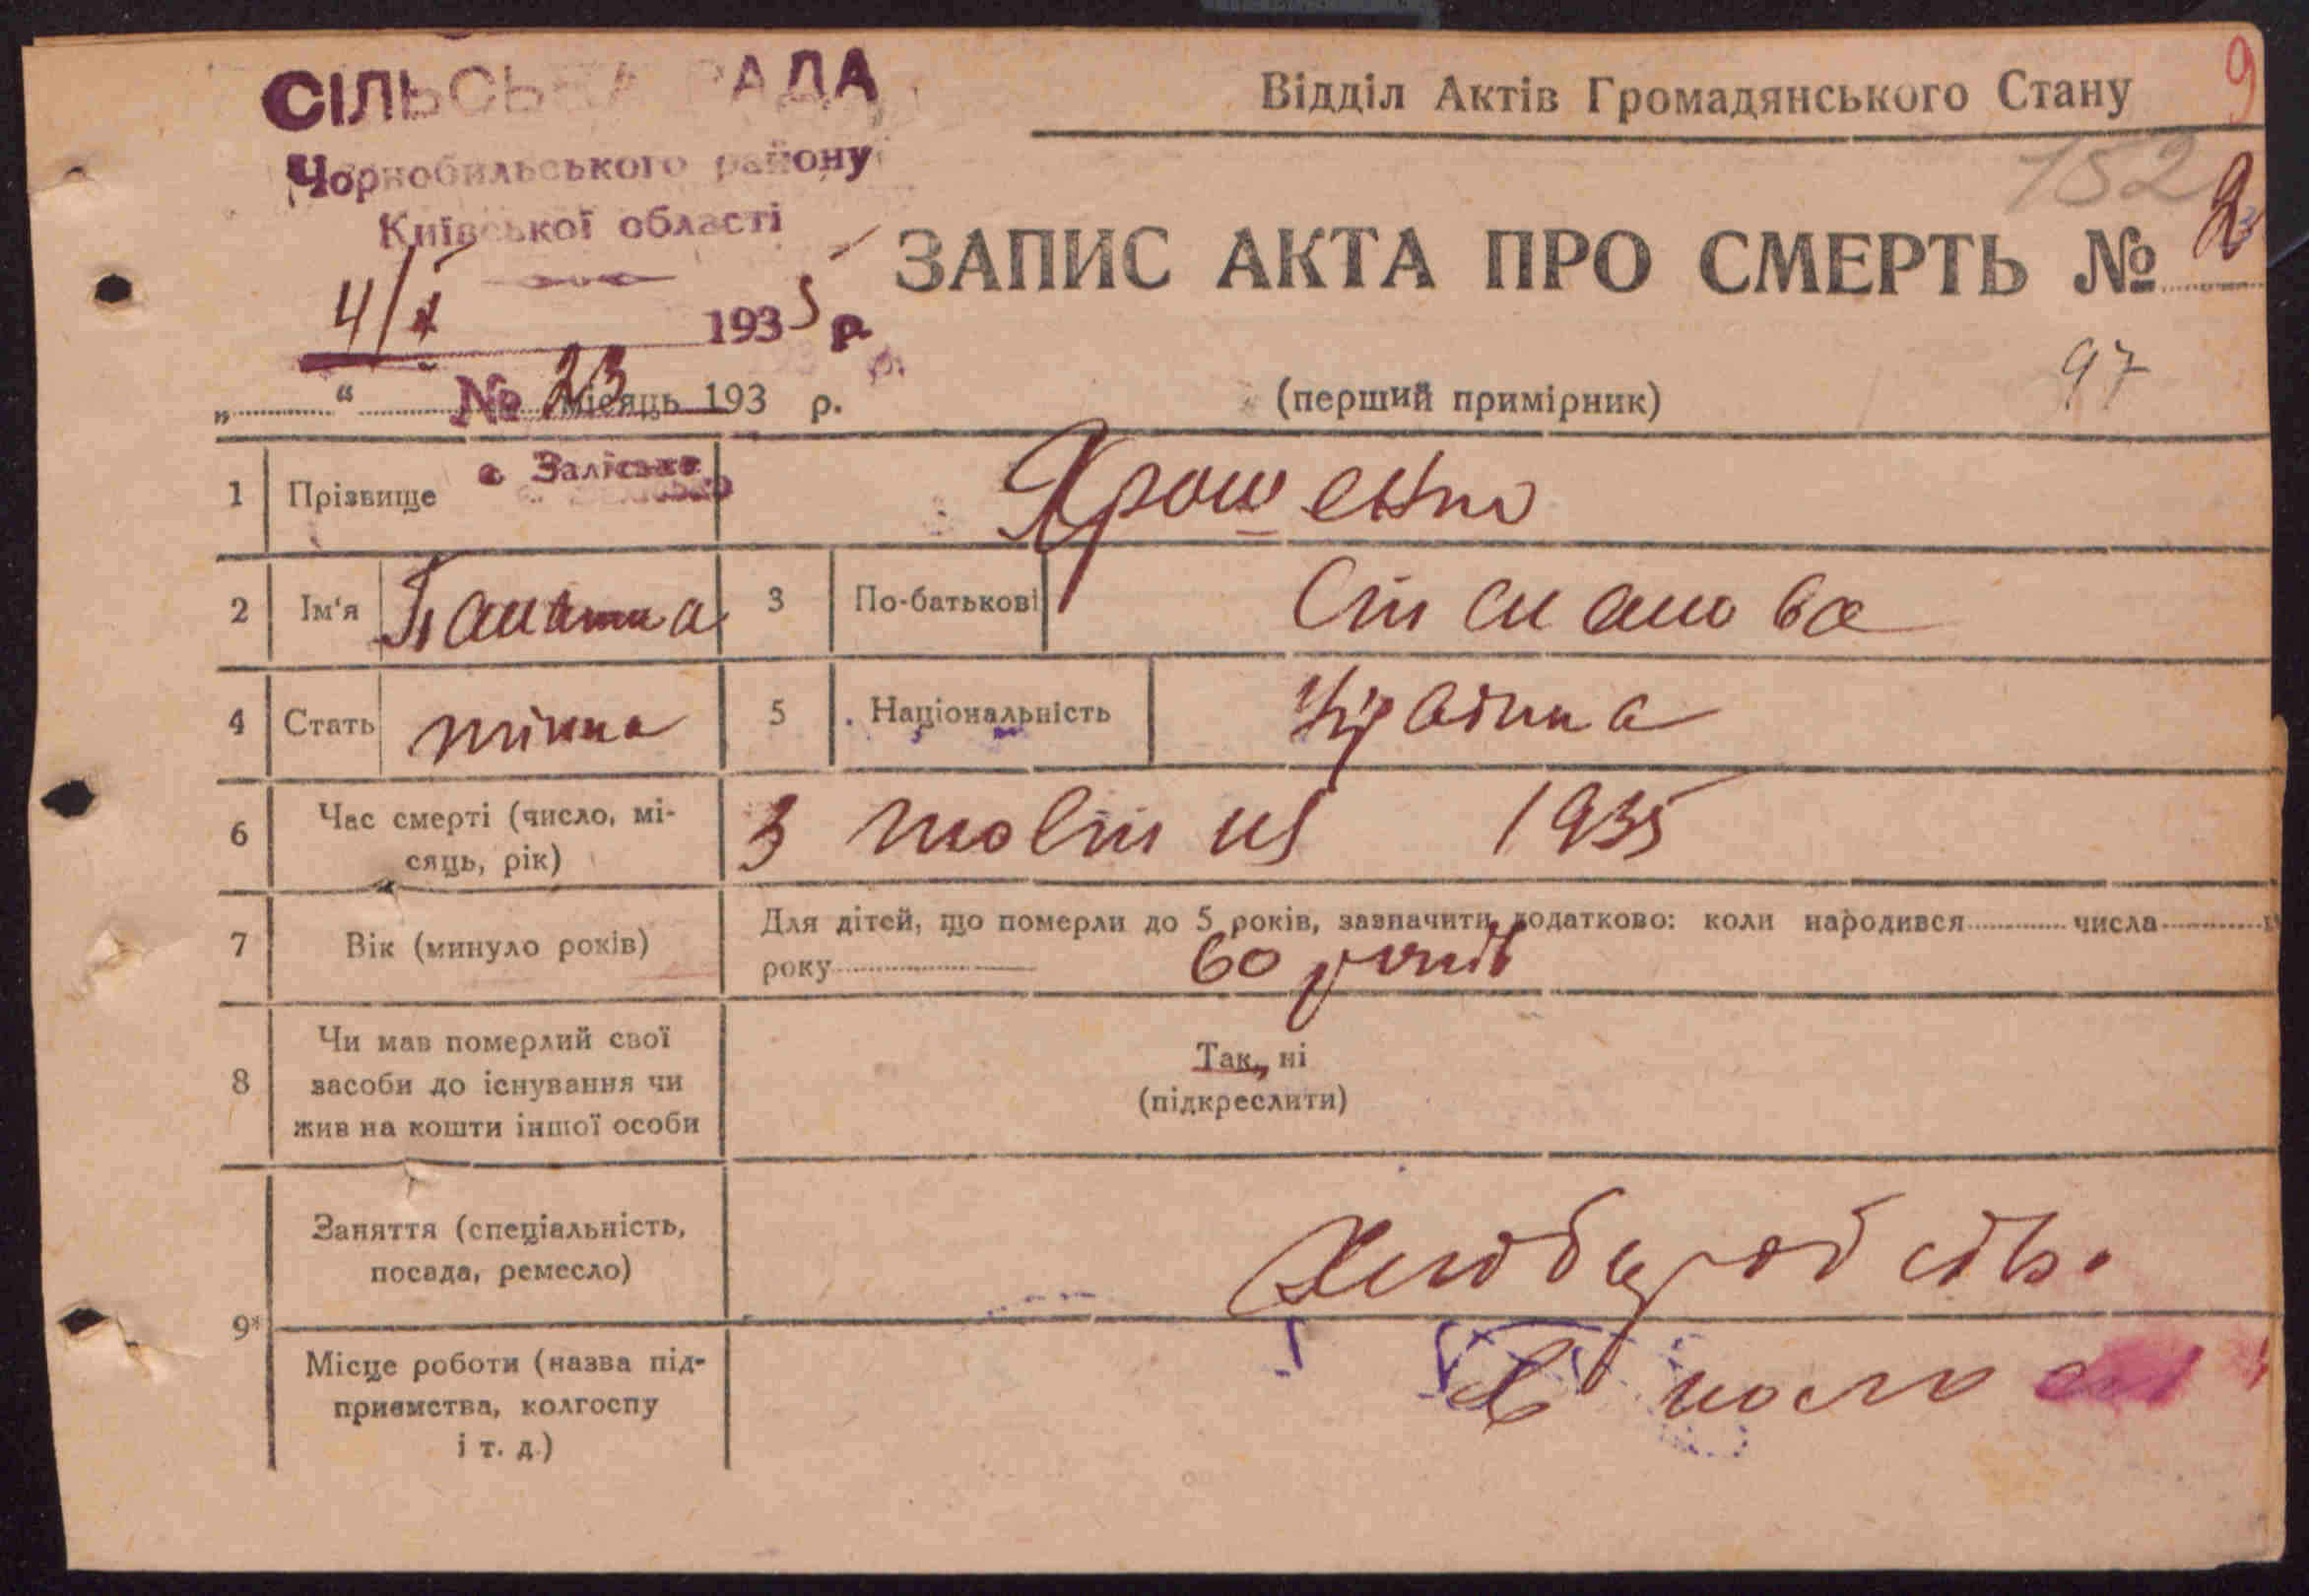 9
СІЛЬСЬКА РАДА
Відділ Актів Громадянського Стану
Чорнобильського району
152
Київської області
ЗАПИС АКТА ПРО СМЕРТЬ № 2
4/X 1935 р.
97
№ 23
„ “ місяць 193 р.
(перший примірник)
с Заліське
1 Прізвище Ярошенко
2 Ім'я 3 По-батькові Степанова
4 Стать жінка 5 Національність Українка
6 Час смерті (число, мі-
сяць, рік) 3 жовтня 1935
7 Вік (минуло років) Для дітей, що померли до 5 років, зазначити додатково: коли народився числа
року 60 років
8 Чи мав померлий свої
засоби до існування чи
жив на кошти іншої особи
Так, ні
(підкреслити)
9* Заняття (спеціальність,
посада, ремесло) Хліборобств.
Місце роботи (назва під-
приємства, колгоспу
і т. д.)
В